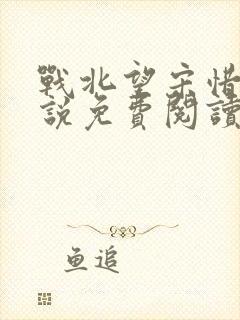 戰北望宋惜
說免費閱讀
鱼追